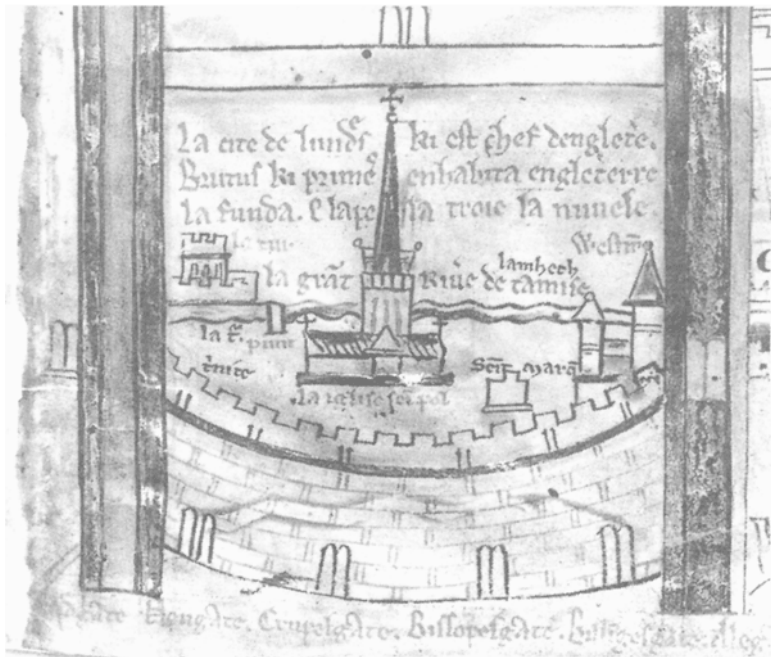 La cite de lundr̃s ki est chef dengletẽ.
Brutus ki prime᷑ enhabita engleterre
la funda. E lape la troie la nuvele.
la tur
Westm̃
lamheth
la grãt Rive de tamise
la t̃.
punt
t̃nite
Sc̃i marc̃
la iglise sei pol
gate. Crupelgate. Bissopesgate. Billigesgate.